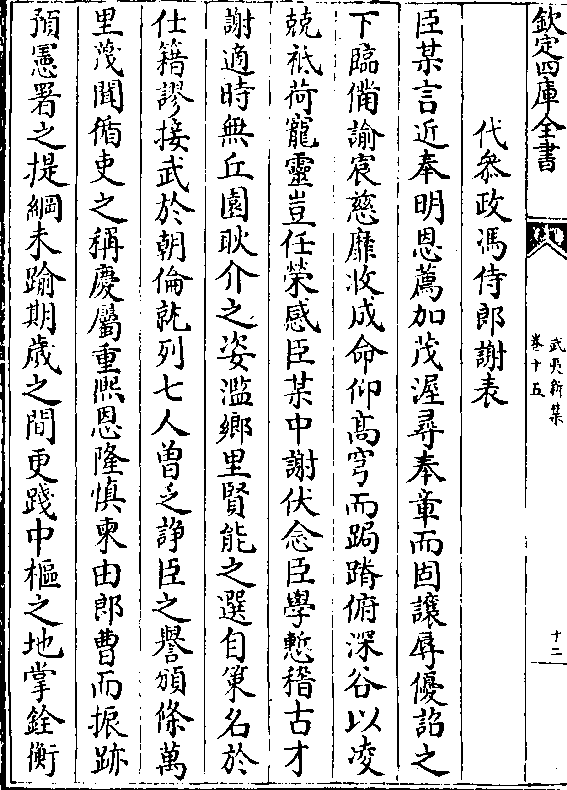 欽定四庫全書
武夷新集
卷十五
十二
代叅政馮侍郎謝表
臣某言近奉明恩薦加茂渥尋奉章而固讓辱優詔之
下臨備諭宸慈靡收成命仰髙穹而跼蹐俯深谷以凌
兢祗荷寵靈豈任榮感臣某中謝伏念臣學慙稽古才
謝適時無丘園耿介之姿濫鄉里賢能之選自策名於
仕籍謬接武於朝倫就列七人曽乏諍臣之譽頒條萬
里蔑聞循吏之稱慶屬重熙恩隆慎柬由郎曹而振跡
預憲署之提綱未踰期歳之間更踐中樞之地掌銓衡